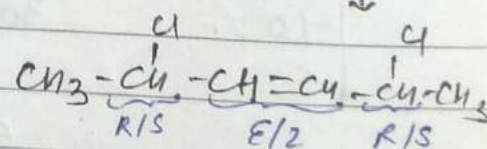 Cl Cl
CH3-CH-CH=CH-CH-CH3
R/S E/Z R/S